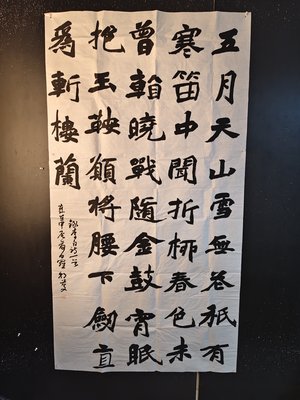 五月天山雪無花祇有
寒笛中聞折柳春色未
曾看曉戰隨金鼓宵眠
抱玉鞍願將腰下劍直
爲斬樓蘭
錄李白詩一首